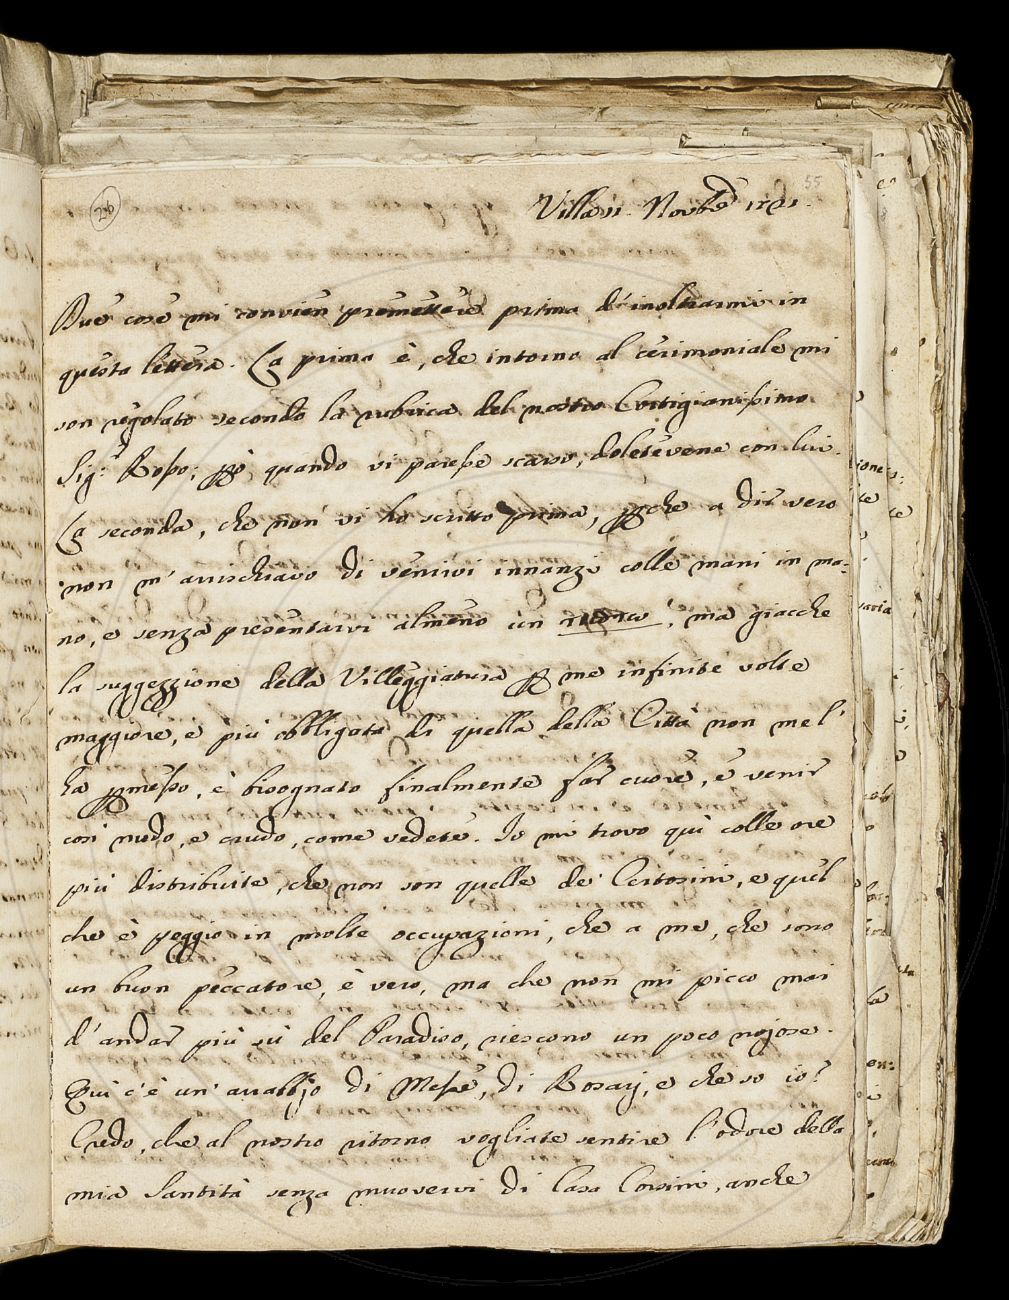 26
55
Villa 11. Novbre 1721.
Due cose mi convien premettere prima d'inoltrarmi in
questa lettera. La prima è, che intorno al cerimoniale mi
son regolato secondo la rubrica del nostro Cortigianissimo
Sigr. Rosso; pò quando vi paresse scarso, doletevene con lui.
La seconda, che non vi ho scritto prima, pche a dir vero
non m'arrischiavo di venirvi innanzi colle mani in ma-
no, e senza presentarvi almeno un; ma giacche
la suggezzione della Villeggiatura p me infinite volte
maggiore, e più obbligata di quella della Città non me l'
ha pmesso, è bisognato finalmente far cuore, e venir
così nudo, e crudo, come vedete. Io mi trovo quì colle ore
più distribuite, che non son quelle de' Certosini, e quel
che è peggio in molte occupazioni, che a me, che sono
un buon peccatore, è vero, ma che non mi picco mai
d'andar più sù del Paradiso, riescono un poco nojose.
Quì c'è un' arrabbjo di Messe, di Rosarj, e che so io?
Credo, che al nostro ritorno vogliate sentire l'odore della
mia Santità senza muovervi di Casa Corsini, anche